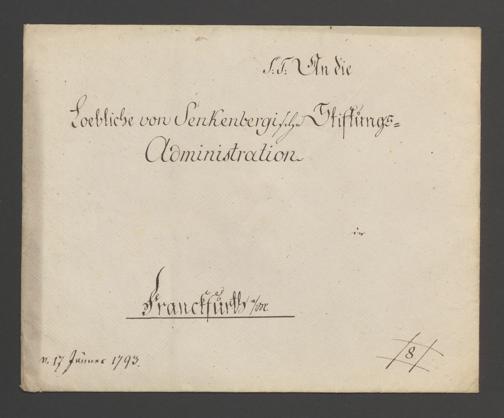 S. T. An die
Loebliche von Senkenbergische Stiftungs=
Administration
in
Franckfurth a/M.
v. 17 Jänner 1793.
8